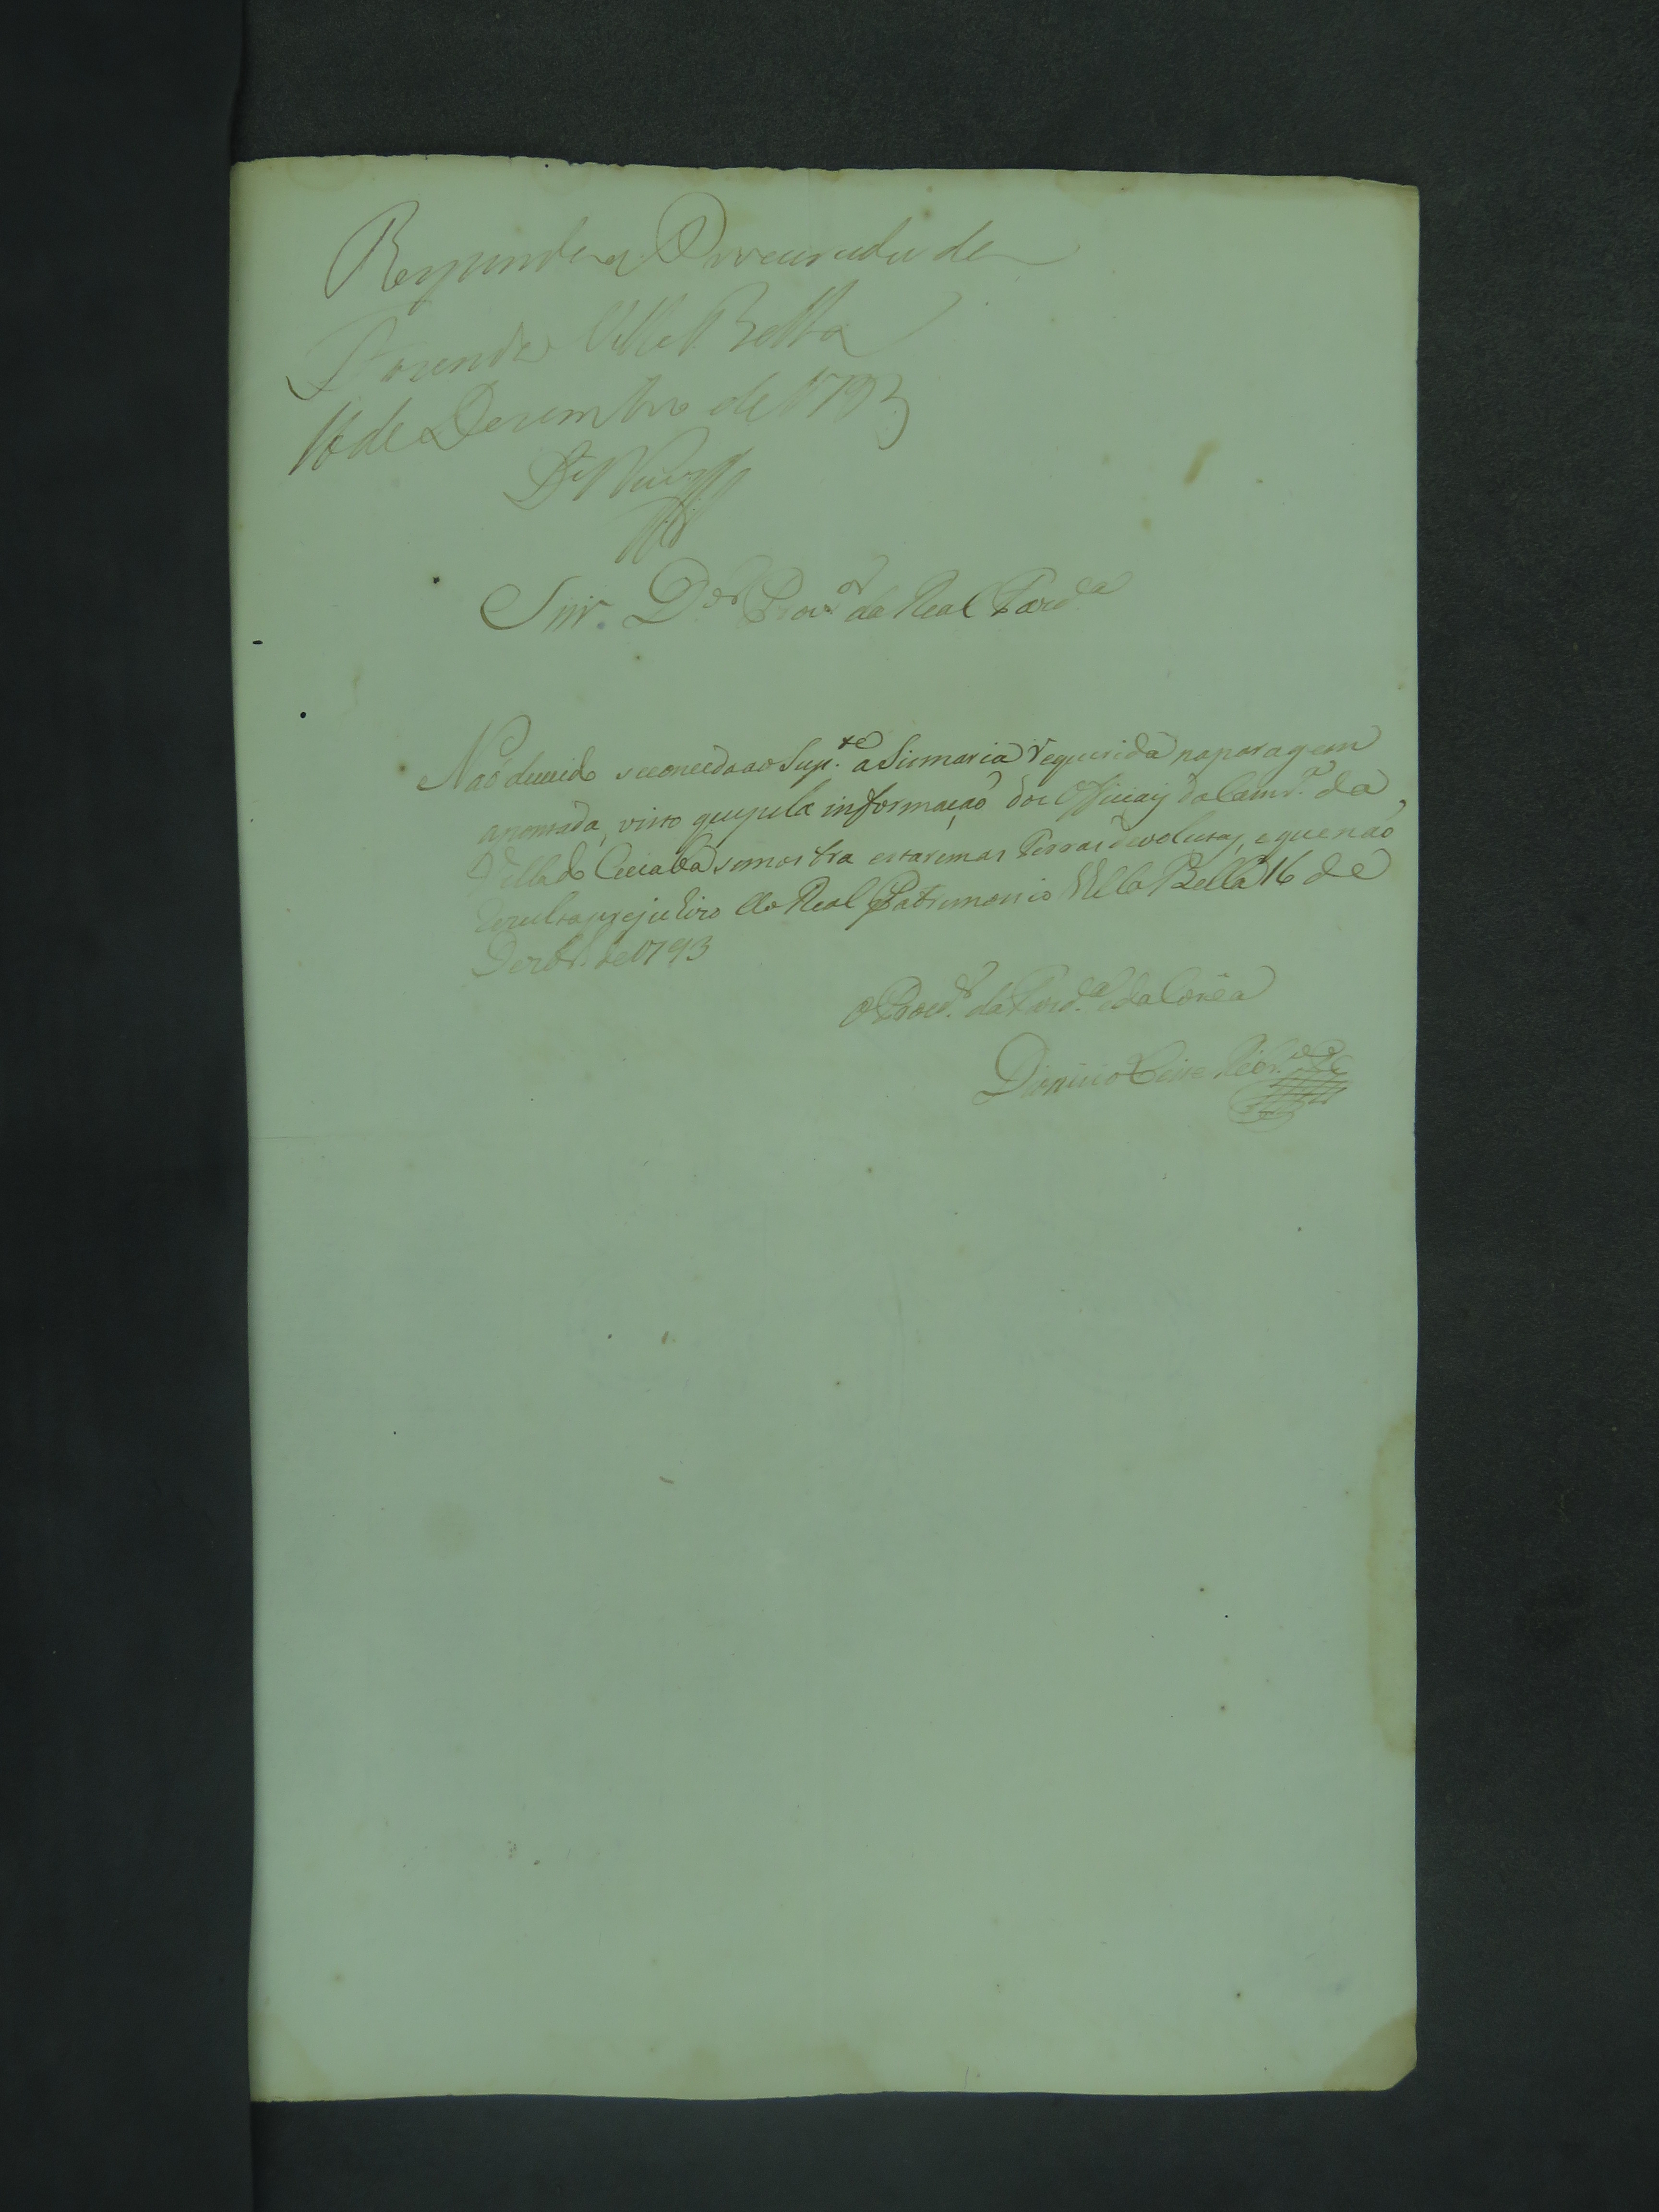 Responda o Procurador da
Fazenda Villa Bella
16 de Dezembro de 1793
Snr. D.or Prov.or da Real Fazd.a
Naõ duvido se conceda ao Sup.te a Sismaria requerida na paragem
apontada, visto que pela informaçaõ dos Officiais da Camr.a da
Villa do Cuiabá se mostra estarem as terras devolutas, e que naõ
rezulta prejuizo ao Real Patrimonio Villa Bella 16 de
Dezbr.o de 1793
O Procd.or da Fazd.a e da Corôa
Dionizio